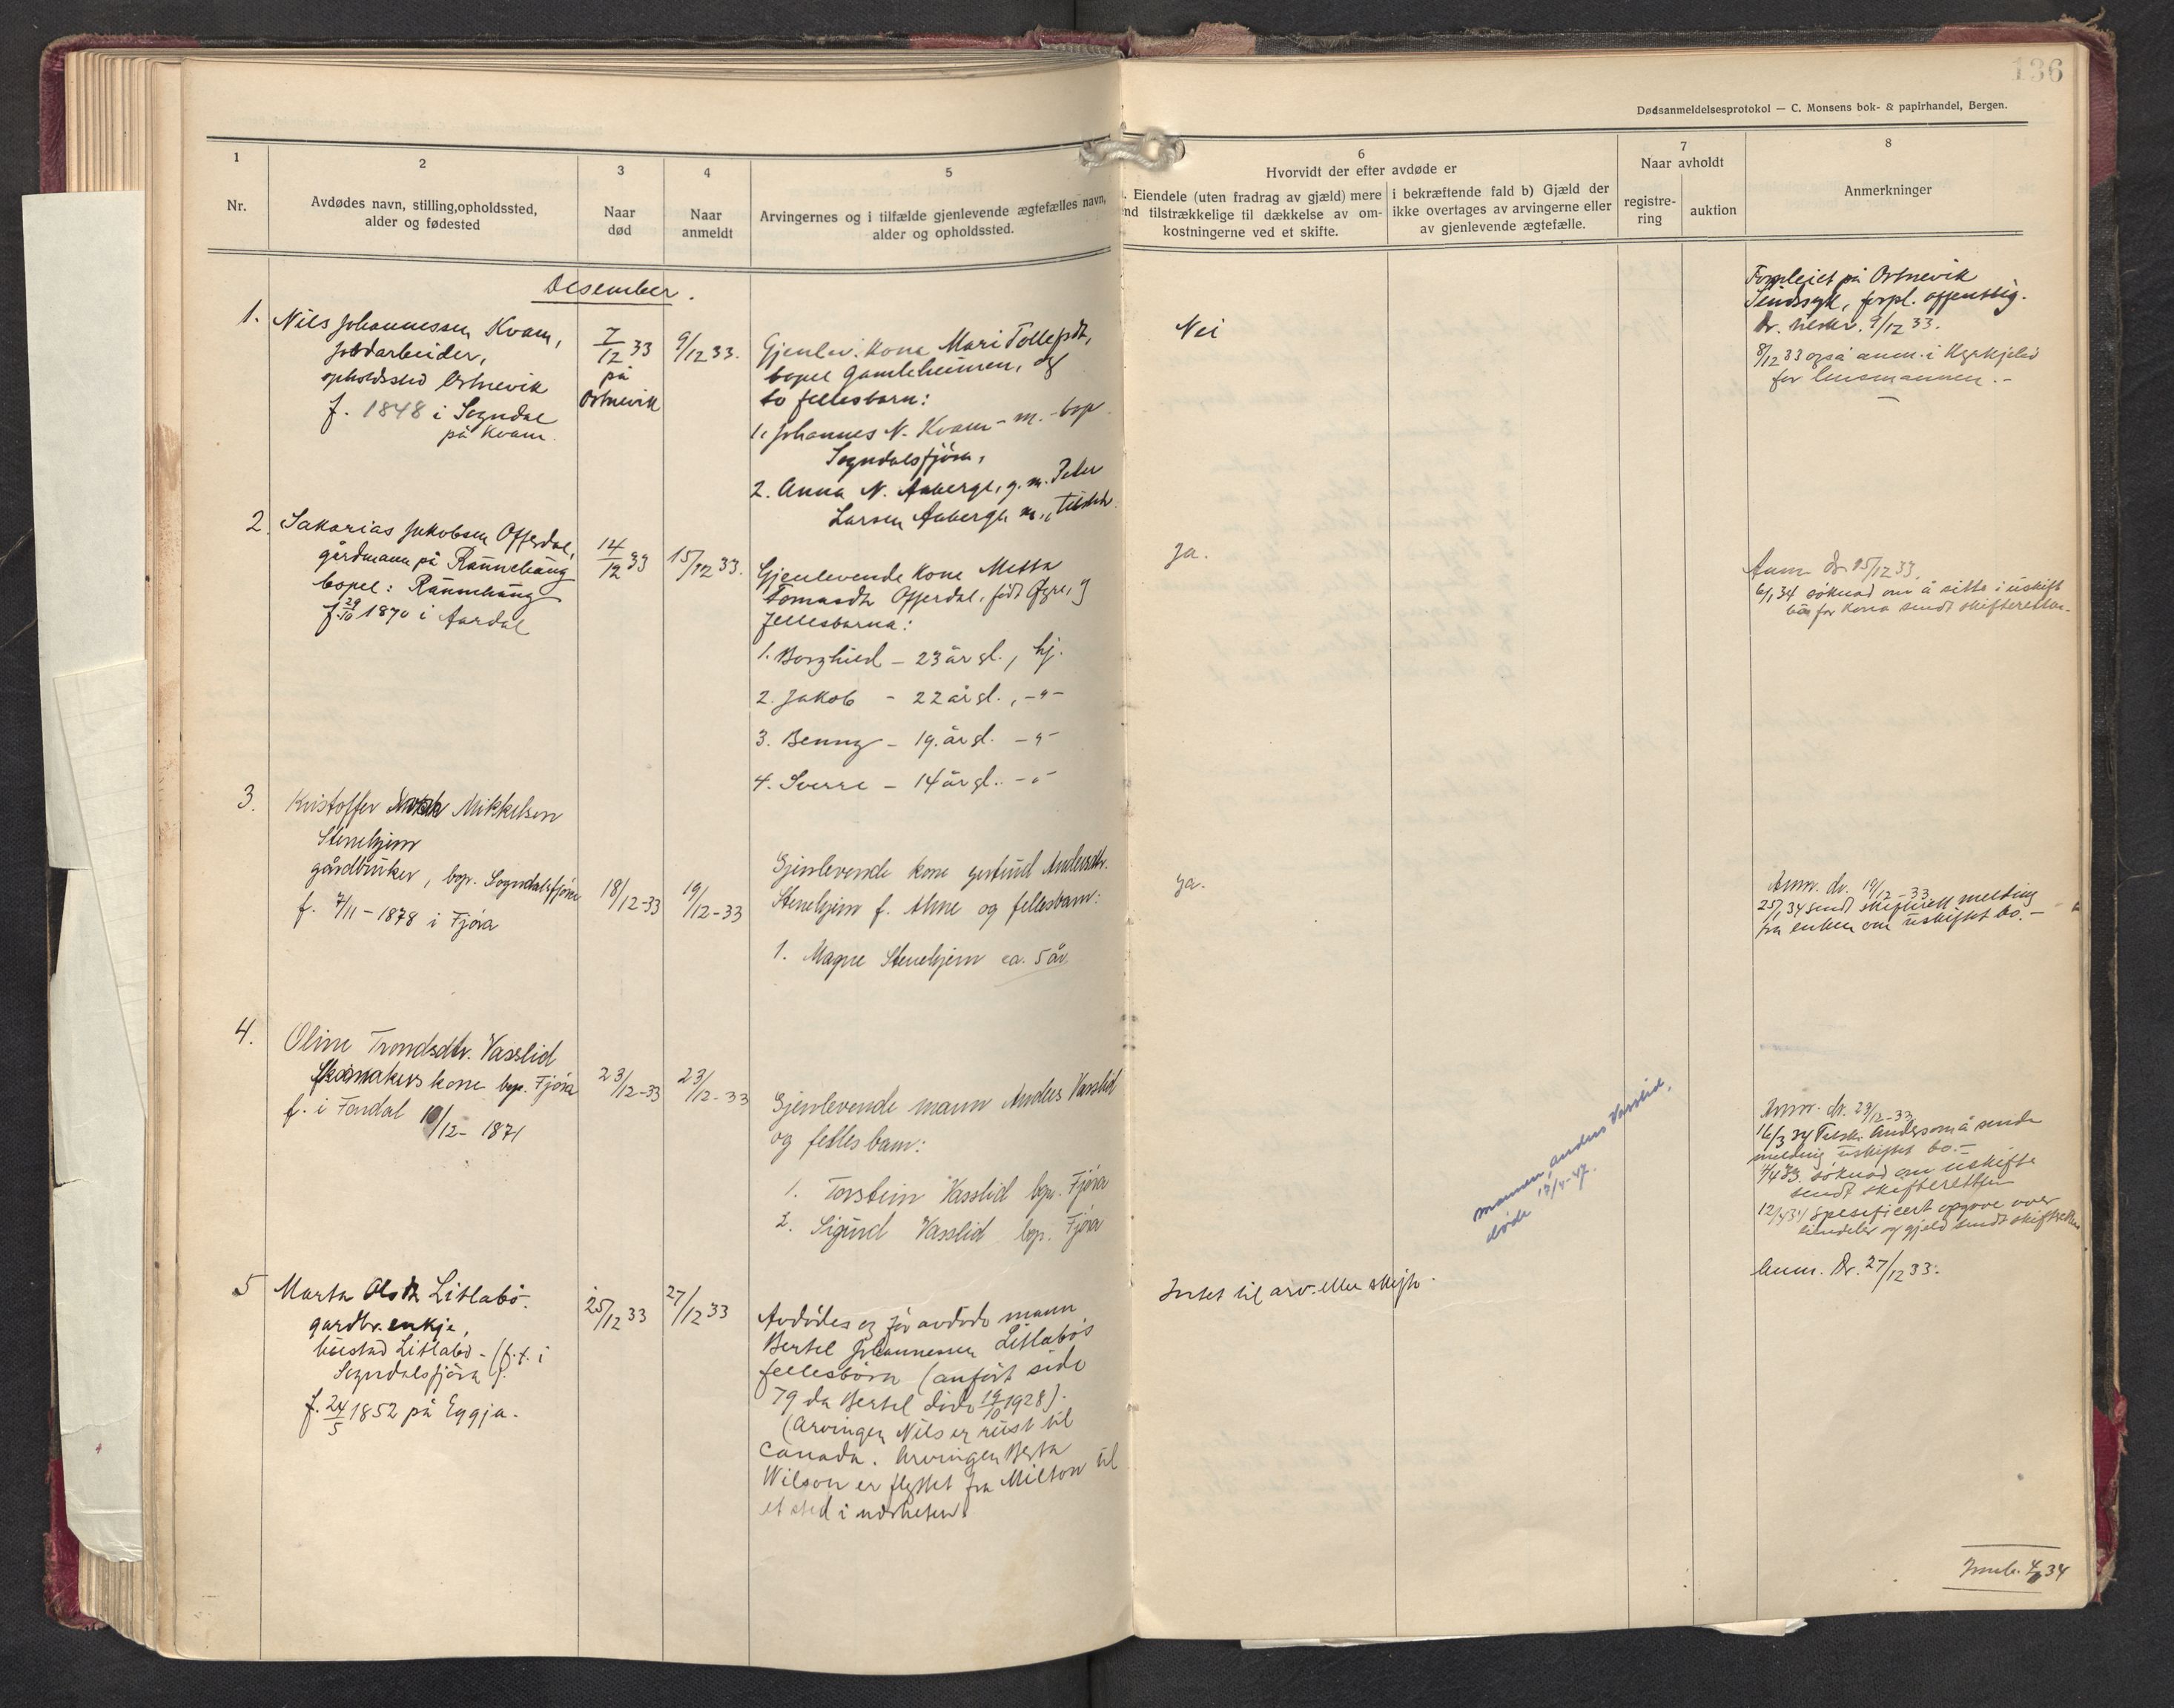 136
Dødsanmeldelsesprotokol — C. Monsens bok- & papirhandel, Bergen.
1
Nr.
2
Avdødes navn, stilling, opholdssted,
alder og fødested
3
Naar
død
4
Naar
anmeldt
5
Arvingernes og i tilfælde gjenlevende ægtefælles navn,
alder og opholdssted.
6
Hvorvidt der efter avdøde er
Eiendele (uten fradrag av gjæld) mere
end tilstrækkelige til dækkelse av om-
kostningerne ved et skifte.
i bekræftende fald b) Gjæld der
ikke overtages av arvingerne eller
av gjenlevende ægtefælle.
7
Naar avholdt
registre-
ring
auktion
8
Anmerkninger
Desember.
1. Nils Johannessen Kvam,
jordarbeider,
opholdssted Ostnevik
f. 1848 i Sogndal
på Kvam.
7/12 33
på
Ostnevik
9/12 33.
Gjenlev. kone Mari Tollefsdt,
bopel Gamleheimen, og
to fellesbarn:
1. Johannes N. Kvam - m. - bop
Sogndalsfjøra,
2. Anna N. Aaberge, g. m. Peder
Larsen Aaberge m.,
Nei
på Ostnevik
Sinnssyk, forpl. offentlig.
9/12 33.
8/12 33 også anm. i
for lensmannen. -
2. Sakarias Jakobsen Offerdal,
gårdmann på Rännehäng
bopel: Rännehäng
f 29/10 1870 i Aardal
14/12 33
15/12 33.
Gjenlevende kone Metta
Tomasdtr Offerdal, født Øyre, og
fellesbarna:
1. Borghild - 23 år gl., hj.
2. Jakob - 22 år gl., -"-
3. Benny - 19. år gl. -"-
4. Sverre - 14 år gl.. -"-
Ja.
Anm dr. 15/12 33.
6/1 34 söknad om å sitte i uskift
bo for kona sendt skifteretten.
3. Kristoffer Mikkelsen
Stenehjem
gårdbruker, bop. Sogndalsfjøra
f. 7/11 - 1878 i Fjøra
18/12-33
19/12-33
Gjenlevende kone Gertrud Andersdtr.
Stenehjem f. Ahne og fellesbarn:
1. Magne Stenehjem ca. 5 år
Ja.
Anm. dr. 19/12-33
25/1 34 sendt skifterett melding
fra enken om uskiftet bo. -
4. Oline Trondsdtr. Vasslid
Skomakers kone bop. Fjøra
f. i Fardal 10/12 - 1871
23/12-33
23/12-33
Gjenlevende mann Anders Vasslid
og fellesbarn:
1. Torstein Vasslid bop. Fjøra
2. Sigurd Vasslid bop. Fjøra
mannen, Anders Vasslid,
døde
Anm. dr. 23/12-33
16/3 34 Tilskr. Anders om å sende
melding uskiftet bo. -
söknad om uskifte
sendt skifteretten
12/4 34 spesifisert opgave over
eiendeler og gjeld sendt skifteretten
5 Marta Olsdtr Litlabø.
gardbr. enkje,
bustad Litlabø - (f.t. i
Sogndalsfjøra)
f. 24/5 1852 på Eggja.
25/12 33
27/12 33
Avdødes og før avdøde mann
Bertel Johannessen Litlabøs
fellesbörn (anført side
79 da Bertel døde 19/10 1928).
(Arvingen Nils er reist til
Canada. Arvingen Berta
Wilson er flyttet fra Milton til
et sted i nærheten.
Intet til arv eller skifte.
Anm. Dr. 27/12 33.
34